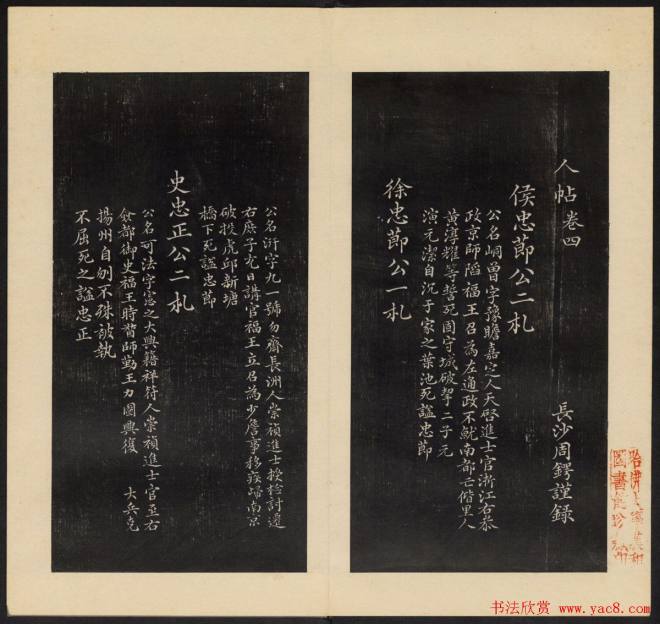 人帖卷四
長沙周鍔謹錄
侯忠節公二札
公名峒曾字豫瞻嘉定人天啓進士官浙江右叅
政京師陷福王召為左通政不就南都亡偕里人
黃淳耀等誓死固守城破挈二子元
演元潔自沉于家之葉池死諡忠節
徐忠節公一札
公名汧字九一號勿齋長洲人崇禎進士授檢討遷
右庶子充日講官福王立召為少詹事移疾歸南京
破投虎邱新塘
橋下死諡忠節
史忠正公二札
公名可法字憲之大興籍祥符人崇禎進士官至右
僉都御史福王時督師勤王力圖興復 大兵克
揚州自刎不殊被執
不屈死之諡忠正
哈佛大學漢和
圖書館珍藏印
书法欣赏 www.yac8.com